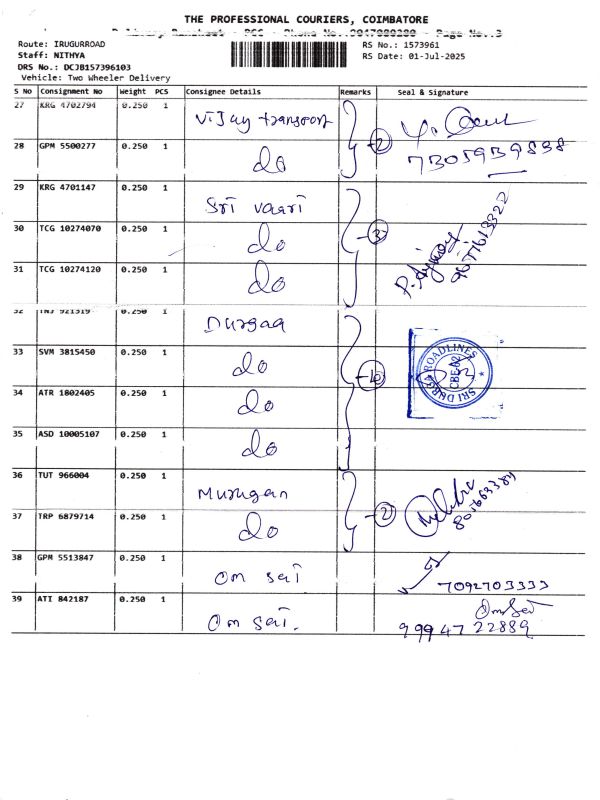 THE PROFESSIONAL COURIERS, COIMBATORE
Route: IRUGURROAD
Staff: NITHYA
DRS No.: DCJB157396103
Vehicle: Two Wheeler Delivery
RS No.: 1573961
RS Date: 01-Jul-2025
S No Consignment No Weight PCS Consignee Details Remarks Seal & Signature
27 KRG 4702794 0.250 1 Vijay transport
28 GPM 5500277 0.250 1 do 2 7305939838
29 KRG 4701147 0.250 1 Sri vaari
30 TCG 10274070 0.250 1 do 3
31 TCG 10274120 0.250 1 do
32 0.250 1 Durgaa
33 SVM 3815450 0.250 1 do SRI DURGA ROADLINES CBE-02
34 ATR 1802405 0.250 1 do
35 ASD 10005107 0.250 1 do
36 TUT 966004 0.250 1 Murugan
37 TRP 6879714 0.250 1 do 2
38 GPM 5513847 0.250 1 Om sai 7092703333
39 ATI 842187 0.250 1 Om sai. Om Sai
99947 22889